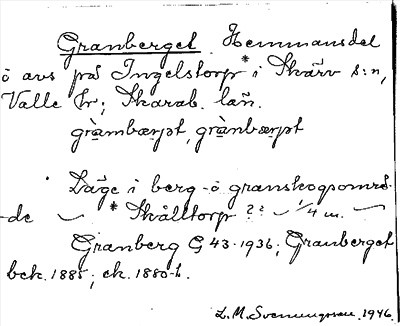 Granberget. Hemmansdel
o avs på Ingelstorp* i Skärv s:n,
Valle hr; Skarab. län.
gràmbærjət, grànbærjət
Läge i berg- o granskogsområ-
de — * Skålltorp ?? — 1/4 m. —
Granberg G 43-1936; Granberget
bek. 1885; ek. 1880-t.
L. M. Svenungsson. 1946.